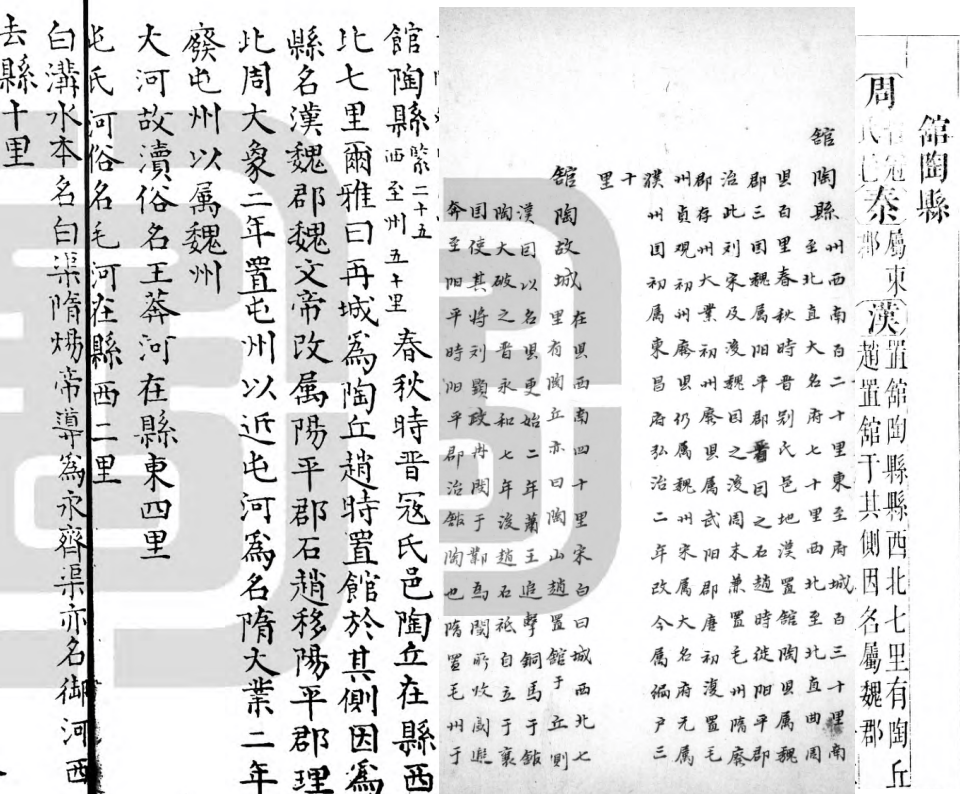 館陶縣
周冠氏邑秦屬東郡漢置館陶縣縣西北七里有陶丘
趙置館于其側因名屬魏郡
館陶縣州西南百二十里東至府城百三十里南
至北直大名府七十里西北至北直曲周
県百里春秋時晋别氏邑地漢置館陶県属魏
郡三囯魏属阳平郡晋因之石趙時徙阳平郡
治此刘宋及後魏因之後周末兼置毛州隋廃
郡存州大業初州廃県属武阳郡唐初復置毛
州貞观初州廃県仍属魏州宋属大名府元属
濮州囯初属東昌府弘治二年改今属編户三
十里
館陶故城在県西南四十里宋白曰城西北七
里有陶丘亦曰陶山趙置館于丘側
漢因以名県更始二年蕭王追擊銅馬于館
陶大破之晋永和七年後趙石祗自立于襄
囯使其将刘顕攻冉閔于鄴為閔所敗閔追
奔至阳平時阳平郡治館陶也隋置毛州于
館陶縣緊二十五西至州五十里春秋時晋冠氏邑陶丘在縣西
北七里爾雅曰再城為陶丘趙時置館於其側因為
縣名漢魏郡魏文帝改属陽平郡石趙移陽平郡理
此周大象二年置屯州以近屯河為名隋大業二年
廢屯州以属魏州
大河故瀆俗名王莽河在縣東四里
屯氏河俗名毛河在縣西二里
白溝水本名白渠隋煬帝導為永濟渠亦名御河西
去縣十里